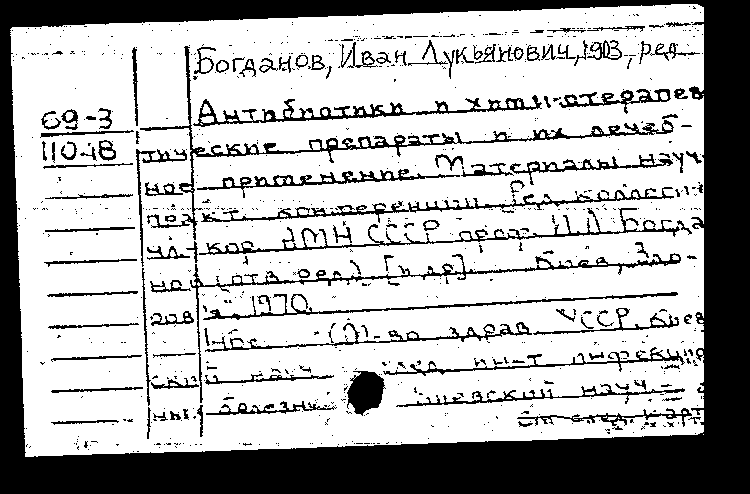 Богданов, Иван Лукьянович, 1903, ред.
69-3
Антибиотики и химиотерапев
110-18
тические препараты и их лечеб-
ное применение. Материалы науч.
практ. конференции. Ред. коллегия:
чл.-кор. АМН СССР проф. И.Л. Богда
нов (отв. ред.) [и др]. Киев, Здо-
ров'я, 1970.
(М-во здрав. УССР. Киев
ский науч. след. ин-т инфекцион
ных болезней. науч.-
См. след. карт